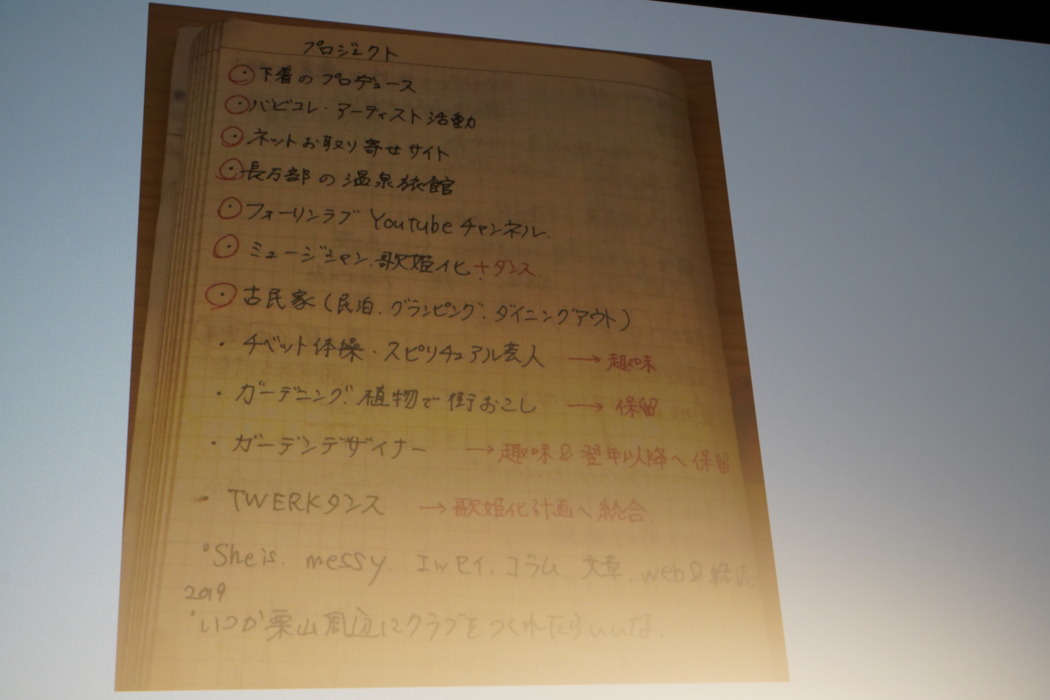 プロジェクト
・下着のプロデュース
・バビコレ・アーティスト活動
・ネットお取り寄せサイト
・長万部の温泉旅館
・フォーリンラブ Youtubeチャンネル.
・ミュージシャン.歌姫化+ダンス
・古民家(民泊.グランピング.ダイニングアウト)
・チベット体操・スピリチュアル芸人 → 趣味
・ガーデニング.植物で街おこし → 保留
・ガーデンデザイナー → 趣味&翌年以降へ保留
・TWERKダンス → 歌姫化計画へ統合
・She is. messy. エッセイ.コラム 文章.web&
2019
・いつか栗山周辺にクラブをつくれたらいいな.